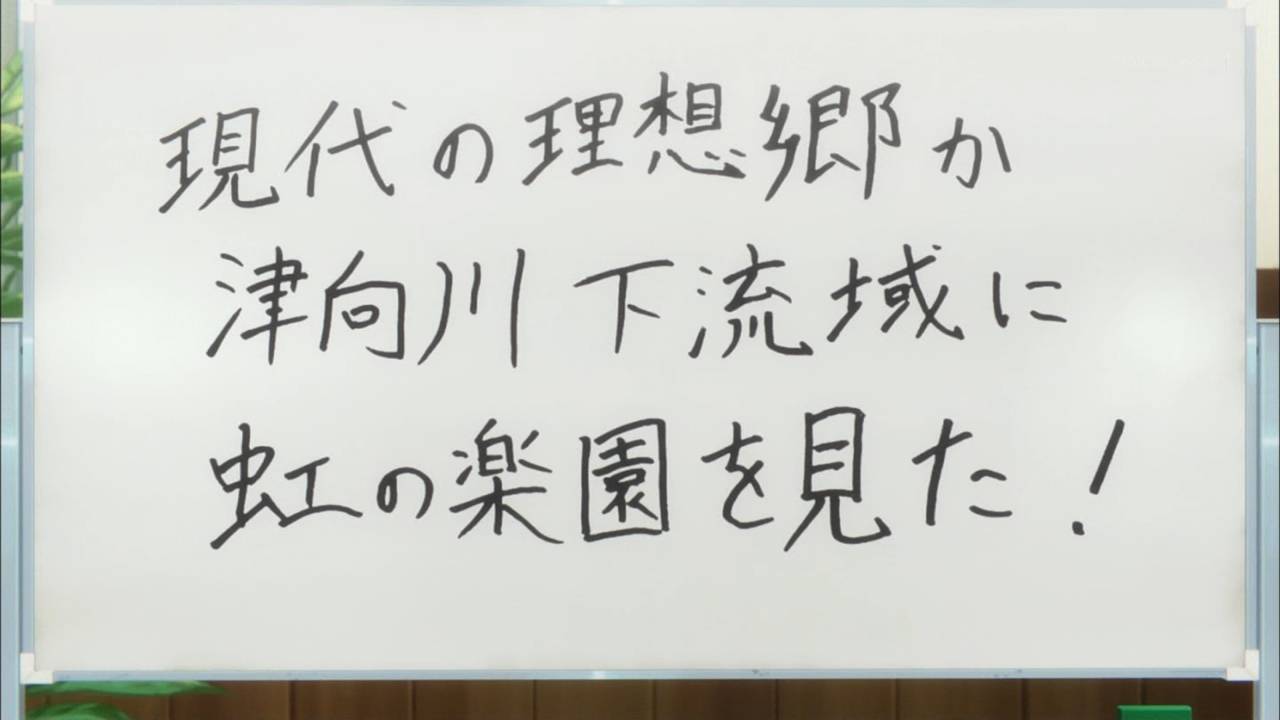 現代の理想郷か
津向川下流域に
虹の楽園を見た!